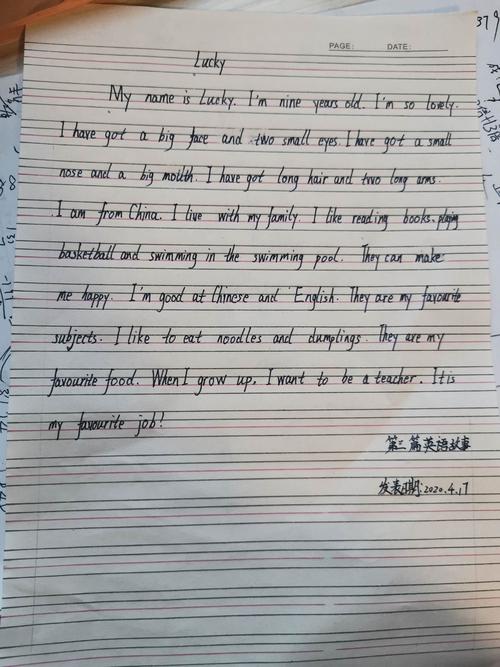 PAGE: DATE:
Lucky
My name is Lucky. I'm nine years old. I'm so lovely.
I have got a big face and two small eyes. I have got a small
nose and a big mouth. I have got long hair and two long arms.
I am from China. I live with my family. I like reading books, playing
basketball and swimming in the swimming pool. They can make
me happy. I'm good at Chinese and English. They are my favourite
subjects. I like to eat noodles and dumplings. They are my
favourite food. When I grow up, I want to be a teacher. It is
my favourite job!
第二篇英语故事
发表日期:2020.4.17